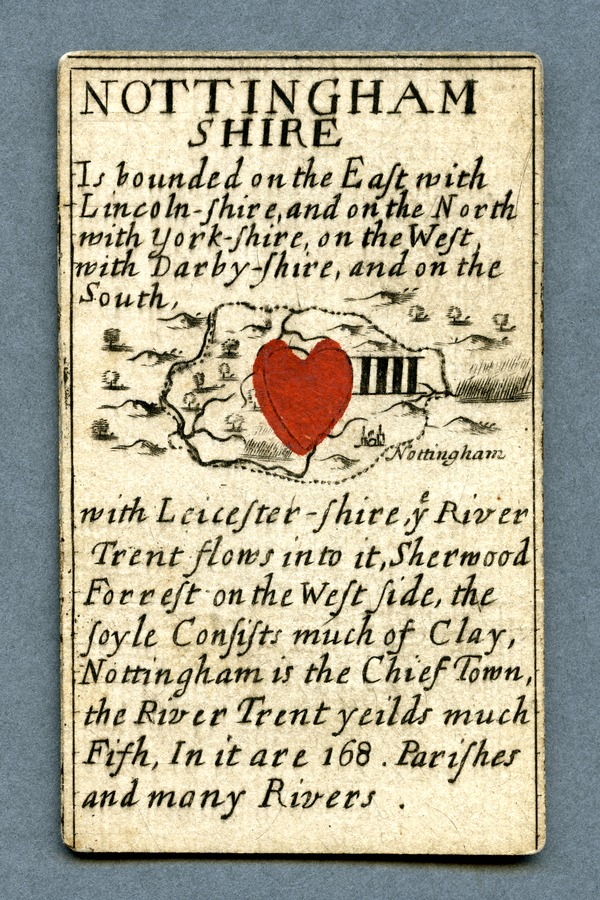 NOTTINGHAM
SHIRE
Is bounded on the Eaſt with
Lincoln-ſhire, and on the North
with York-ſhire, on the Weſt,
with Darby-ſhire, and on the
South,
Nottingham
with Leiceſter-ſhire, yͤ River
Trent flows into it, Sherwood
Forreſt on the Weſt ſide, the
ſoyle Conſiſts much of Clay,
Nottingham is the Chief Town,
the River Trent yeilds much
Fiſh, In it are 168. Pariſhes
and many Rivers.